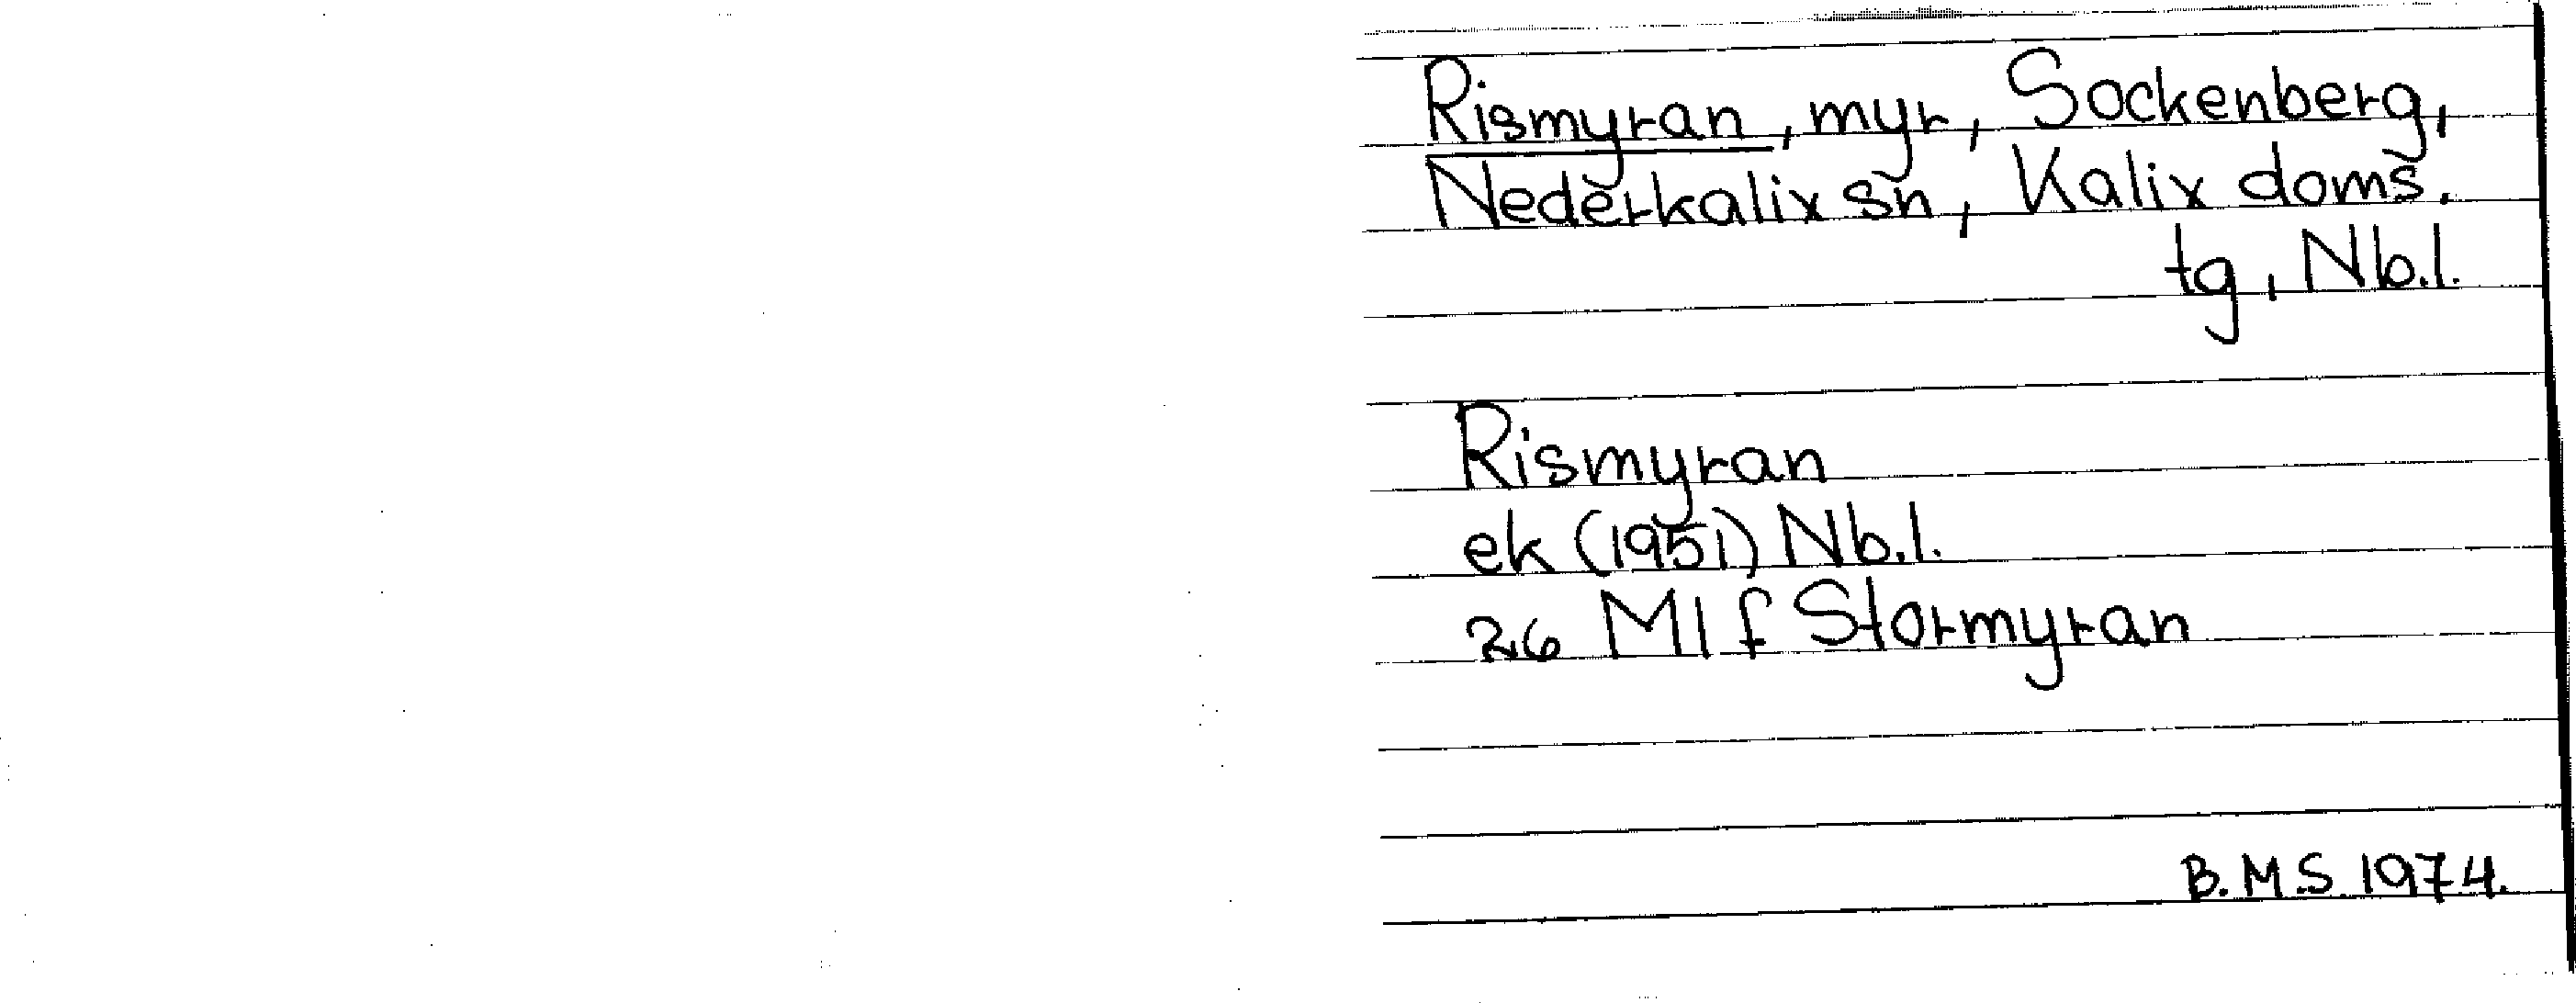 Rismyran, myr, Sockenberg,
Nederkalix sn, Kalix doms.
tg, Nb.l.
Rismyran
ek (1951) Nb.l.
26 M1f Stormyran
B.M.S. 1974.